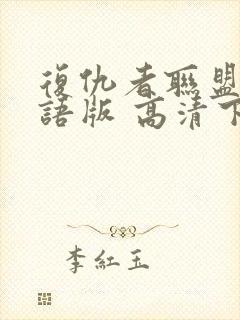 復仇者聯盟
語版 高清下
李紅玉